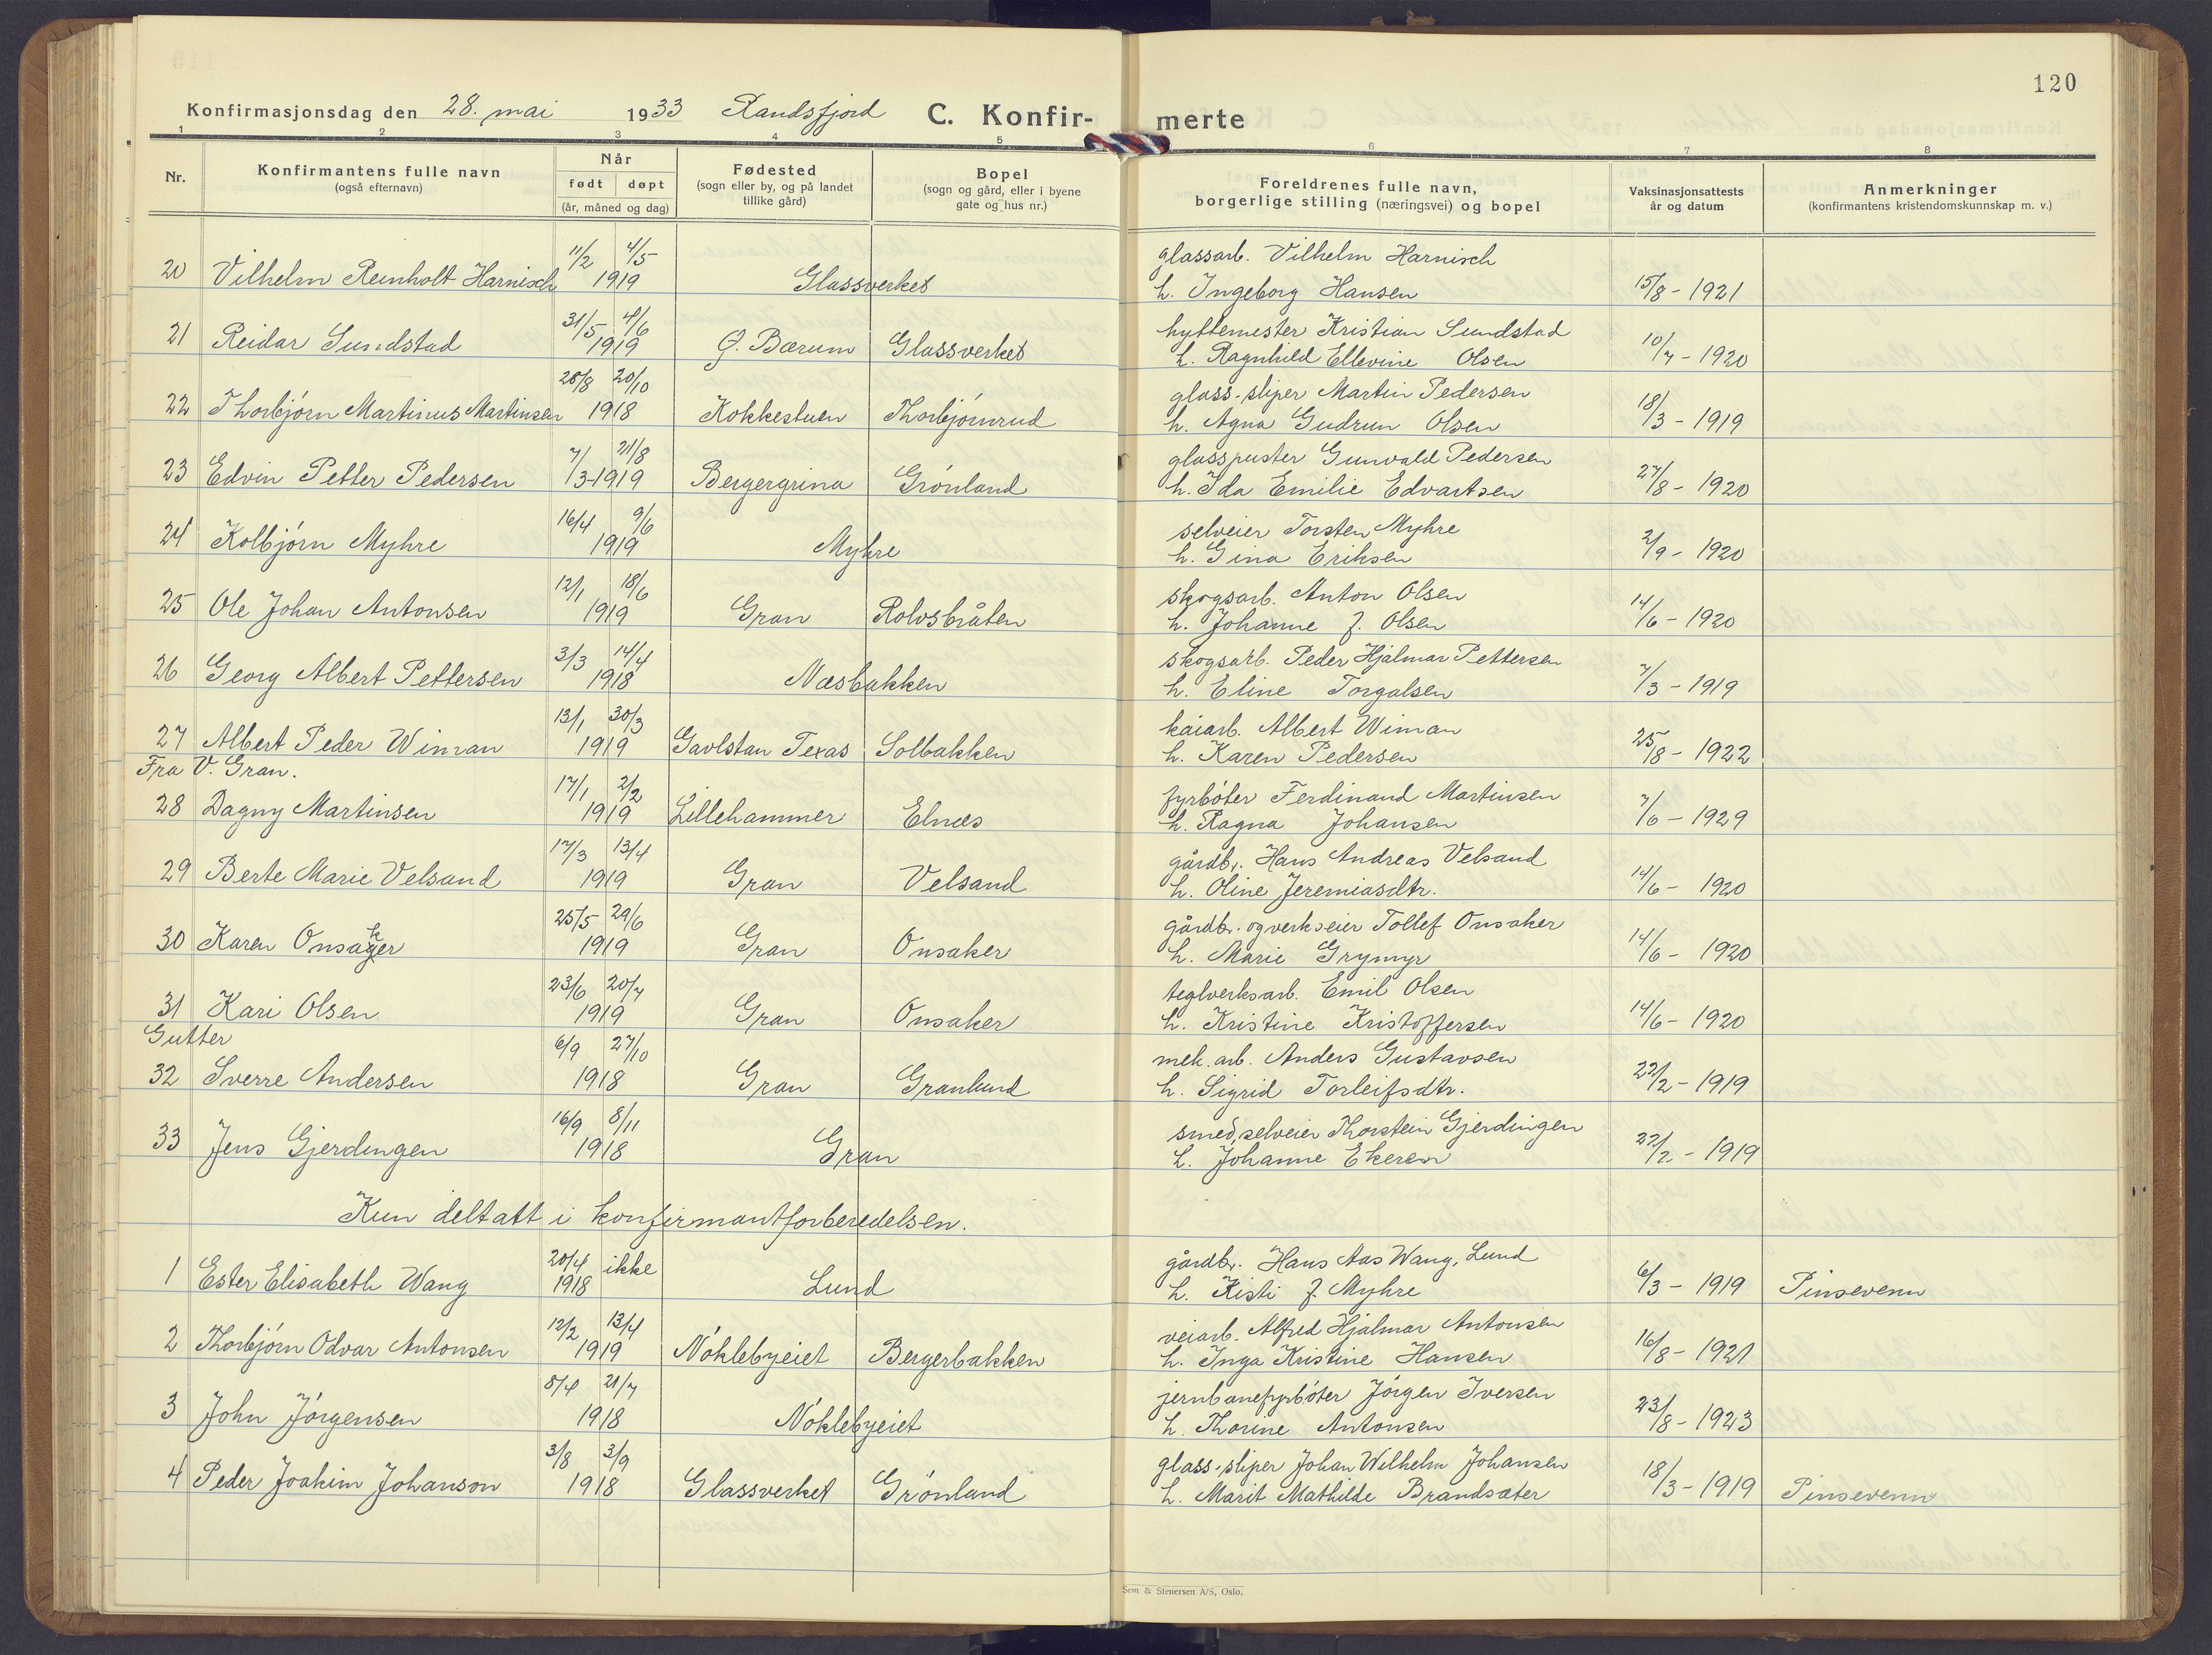 120
Konfirmasjonsdag den 28. mai 1933 Randsfjord C. Konfirmerte
1 2 3 4 5 6 7 8
Nr.
Konfirmantens fulle navn
(også efternavn)
Når
født døpt
(år, måned og dag)
Fødested
(sogn eller by, og på landet
tillike gård)
Bopel
(sogn og gård, eller i byene
gate og hus nr.)
Foreldrenes fulle navn,
borgerlige stilling (næringsvei) og bopel
Vaksinasjonsattests
år og datum
Anmerkninger
(konfirmantens kristendomskunnskap m. v.)
11/2 4/5 glassarb. Vilhelm Harnisch
20 Vilhelm Reinholt Harnisch 1919 Glassverket h. Ingeborg Hansen 15/8 - 1921
31/5 4/6 hyttemester Kristian Sundstad
21 Reidar Sundstad 1919 Ø. Bærum Glassverket h. Ragnhild Ellevine Olsen 10/7 - 1920
28/8 20/10 glass-sliper Martin Pedersen
22 Thorbjørn Martinus Martinsen 1918 Kokkestuen Thorbjørnrud h. Agna Gudrun Olsen 18/3 - 1919
7/3 21/8 glasspuster Gunvald Pedersen
23 Edvin Petter Pedersen 1919 Bergergrina Grønland h. Ida Emilie Edvartsen 27/8 - 1920
16/4 9/6 selveier Torsten Myhre
24 Kolbjørn Myhre 1919 Myhre h. Gina Eriksen 2/9 - 1920
12/1 18/6 skogsarb. Anton Olsen
25 Ole Johan Antonsen 1919 Gran Rolvsbråten h. Johanne J. Olsen 14/6 - 1920
3/3 14/4 skogsarb. Peder Hjalmar Pettersen
26 Georg Albert Pettersen 1918 Næsbakken h. Eline Torgalsen 7/3 - 1919
13/1 30/3 kaiarb. Albert Wiman
27 Albert Peder Wiman 1919 Gavlstan Texas Solbakken h. Karen Pedersen 25/8 - 1922
Fra V. Gran.
17/1 2/2 fyrbøter Ferdinand Martinsen
28 Dagny Martinsen 1919 Lillehammer Elnes h. Ragna Johansen 7/6 - 1929
17/3 13/4 gårdbr. Hans Andreas Velsand
29 Berte Marie Velsand 1919 Gran Velsand h. Oline Jeremiasdtr. 14/6 - 1920
25/5 29/6 gårdbr. og verkseier Tollef Onsaker
30 Karen Onsaker 1919 Gran Onsaker h. Marie Grymyr 14/6 - 1920
23/6 20/7 teglverksarb. Emil Olsen
31 Kari Olsen 1919 Gran Onsaker h. Kristine Kristoffersen 14/6 - 1920
Gutter
6/9 27/10 mek. arb. Anders Gustavsen
32 Sverre Andersen 1918 Gran Granlund h. Sigrid Torleifsdtr. 22/2 - 1919
16/9 8/11 smed, selveier Thorstein Gjerdingen
33 Jens Gjerdingen 1918 Gran h. Johanne Ekeren 22/2 - 1919
Kun deltatt i konfirmantforberedelsen.
20/4 ikke gårdbr. Hans Aas Wang, Lund
1 Ester Elisabeth Wang 1918 Lund h. Kisti J. Myhre 6/3 - 1919 Pinsevenn
12/2 13/4 veiarb. Alfred Hjalmar Antonsen
2 Thorbjørn Odvar Antonsen 1919 Nøklebyeiet Bergerbakken h. Inga Kristine Hansen 16/8 - 1921
8/4 21/7 jernbanefyrbøter Jørgen Iversen
3 John Jørgensen 1918 Nøklebyeiet h. Thorine Antonsen 23/8 - 1923
3/8 3/9 glass-sliper Johan Wilhelm Johansen
4 Peder Joakim Johanson 1918 Glassverket Grønland h. Marit Mathilde Brandsæter 18/3 - 1919 Pinsevenn
Sem & Stenersen A/S, Oslo.